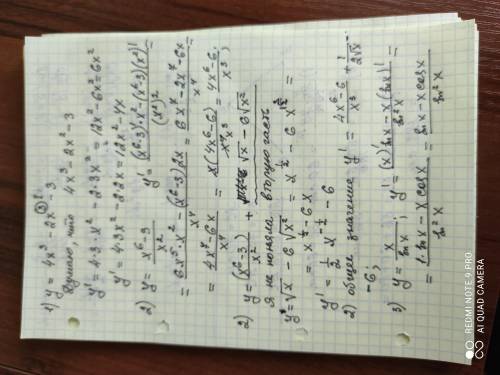 1) y = 4x³ - 2x² - 3
Думаю, что 4x³ - 2x² - 3
y' = 4·3·x² - 2·3x² = 12x² - 6x² = 6x²
y' = 4·3x² - 2·2x = 12x² - 4x
2) y = (x⁶-3)/x² y' = ((x⁶-3)'·x² - (x⁶-3)(x²)')/(x²)² =
= (6x⁵·x² - (x⁶-3)2x)/x⁴ = (6x⁷ - 2x⁷ - 6x)/x⁴ =
= (4x⁷ - 6x)/x⁴ = x(4x⁶-6)/x⁴ = (4x⁶-6)/x³
2) y = (x⁶-3)/x² + √x - 6√x²
Я не поняла вторую часть
y = √x - 6√x² = x^½ - 6x =
= x^½ - 6x
y' = ½ x^-½ - 6
2) общее значение y' = (4x⁶-6)/x³ + 1/(2√x)
-6;
3) y = x/sin x; y' = ((x)' sin x - x(sin x)')/sin² x =
= (1·sin x - x cos x)/sin² x = (sin x - x cos x)/sin² x
REDMI NOTE 9 PRO
AI QUAD CAMERA